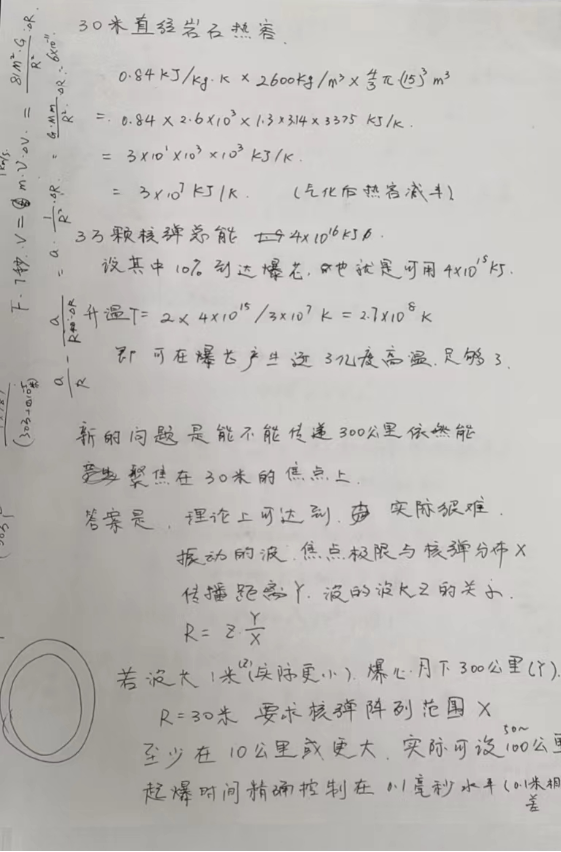 30米直径岩石热容.
0.84 KJ/kg·K × 2600kg/m³ × 4/3 π (15)³ m³
= 0.84 × 2.6×10³ × 1.3×3.14×3375 KJ/K.
= 3×10¹×10³×10³ KJ/K.
= 3×10⁷ KJ/K. (气化后热容减半)
3万颗核弹总能 4×10¹⁶KJ.
设其中10%到达爆芯, 也就是可用 4×10¹⁵KJ.
升温T= 2×4×10¹⁵/3×10⁷ K = 2.7×10⁸ K
即可在爆芯产生近3亿度高温.足够了.
新的问题是能不能传递300公里依然能
聚焦在30米的焦点上.
答案是, 理论上可达到, 实际很难.
振动的波.焦点极限与核弹分布X
传播距离Y, 波的波长Z的关系.
R= Z·Y/X
若波长1米(Z)(实际更小).爆心月下300公里(Y).
R=30米 要求核弹阵列范围X
至少在10公里或更大.实际可设50~100公里
起爆时间精确控制在0.1毫秒水平(0.1米相
差